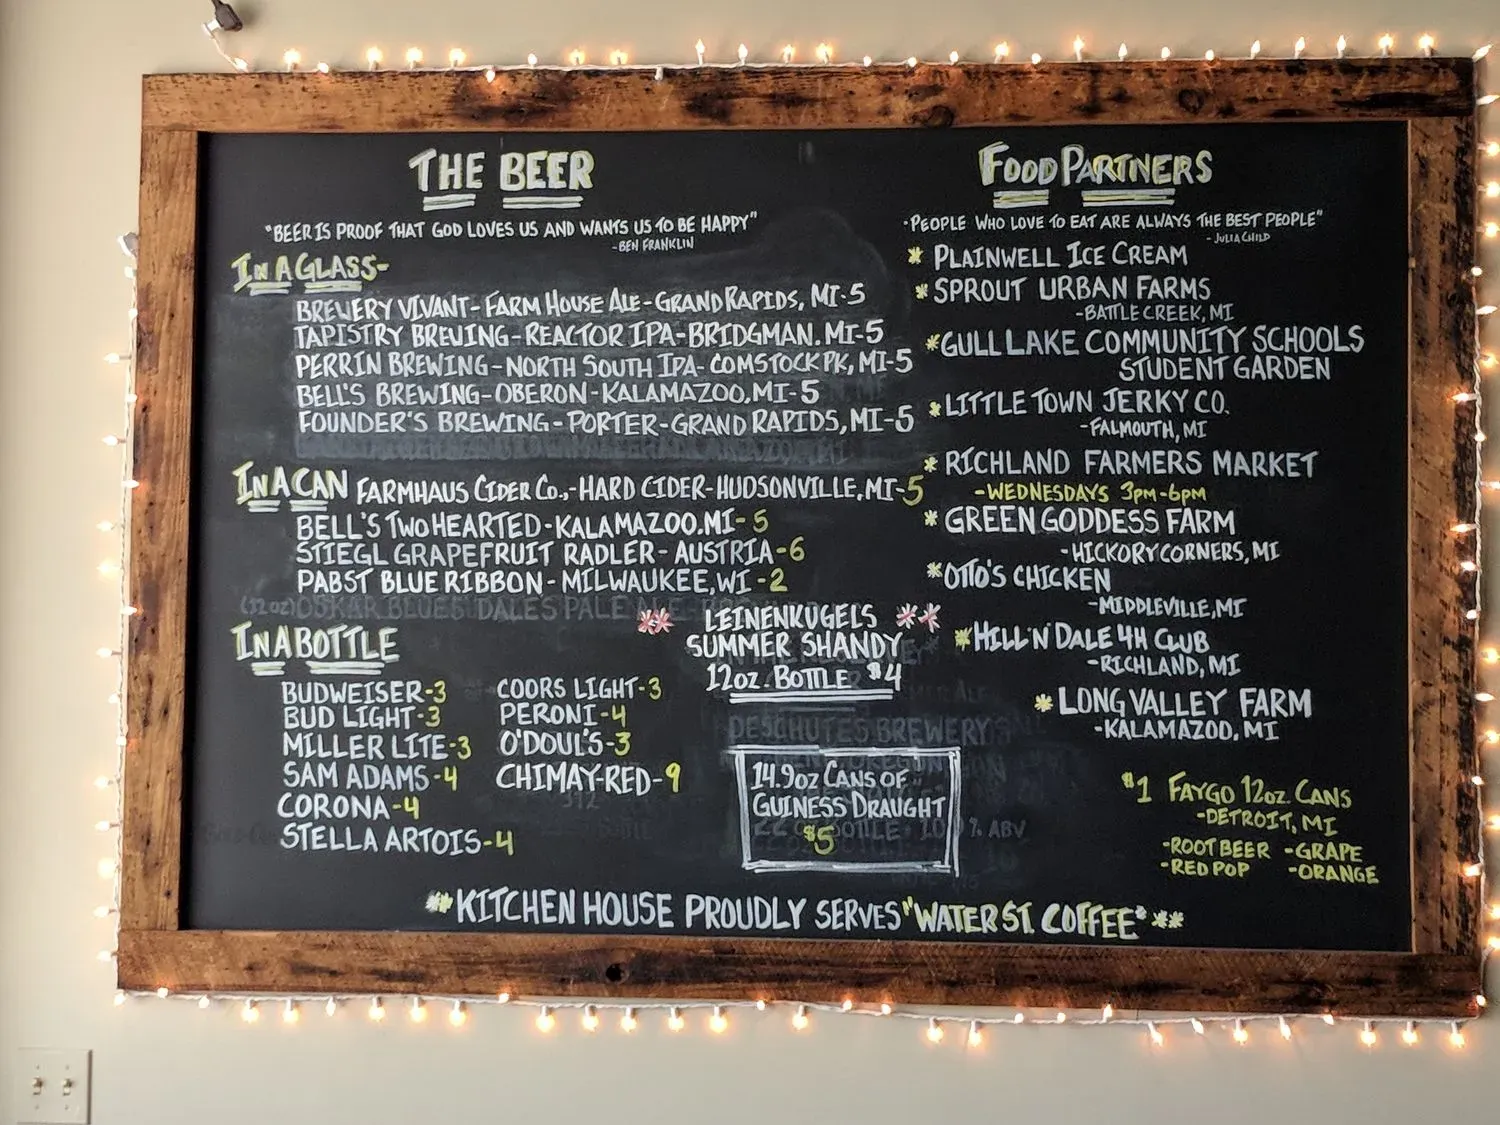 THE BEER
"BEER IS PROOF THAT GOD LOVES US AND WANTS US TO BE HAPPY"
-BEN FRANKLIN
IN A GLASS-
BREWERY VIVANT-FARM HOUSE ALE-GRAND RAPIDS, MI-5
TAPISTRY BREWING-REACTOR IPA-BRIDGMAN. MI-5
PERRIN BREWING-NORTH SOUTH IPA-COMSTOCK PK, MI-5
BELL'S BREWING-OBERON-KALAMAZOO, MI-5
FOUNDER'S BREWING-PORTER-GRAND RAPIDS, MI-5
IN A CAN FARMHAUS CIDER CO.,-HARD CIDER-HUDSONVILLE, MI-5
BELL'S TWO HEARTED-KALAMAZOO. MI-5
STIEGL GRAPEFRUIT RADLER-AUSTRIA-6
PABST BLUE RIBBON-MILWAUKEE, WI-2
(12 OZ) OSKAR BLUES DALES PALE ALE
** LEINENKUGELS **
SUMMER SHANDY
12OZ. BOTTLE $4
IN A BOTTLE
BUDWEISER-3
BUD LIGHT-3
MILLER LITE-3
SAM ADAMS-4
CORONA-4
STELLA ARTOIS-4
COORS LIGHT-3
PERONI-4
O'DOUL'S-3
CHIMAY-RED-9
DESCHUTES BREWERY
14.9OZ CANS OF
GUINESS DRAUGHT
$5
% ABV
FOOD PARTNERS
"PEOPLE WHO LOVE TO EAT ARE ALWAYS THE BEST PEOPLE"
-JULIA CHILD
* PLAINWELL ICE CREAM
* SPROUT URBAN FARMS
-BATTLE CREEK, MI
* GULL LAKE COMMUNITY SCHOOLS
STUDENT GARDEN
* LITTLE TOWN JERKY CO.
-FALMOUTH, MI
* RICHLAND FARMERS MARKET
-WEDNESDAYS 3PM-6PM
* GREEN GODDESS FARM
-HICKORY CORNERS, MI
* OTTO'S CHICKEN
-MIDDLEVILLE, MI
* HILL 'N' DALE 4H CLUB
-RICHLAND, MI
* LONG VALLEY FARM
-KALAMAZOO, MI
$1 FAYGO 12OZ. CANS
-DETROIT, MI
-ROOT BEER -GRAPE
-RED POP -ORANGE
**KITCHEN HOUSE PROUDLY SERVES "WATER ST. COFFEE" **